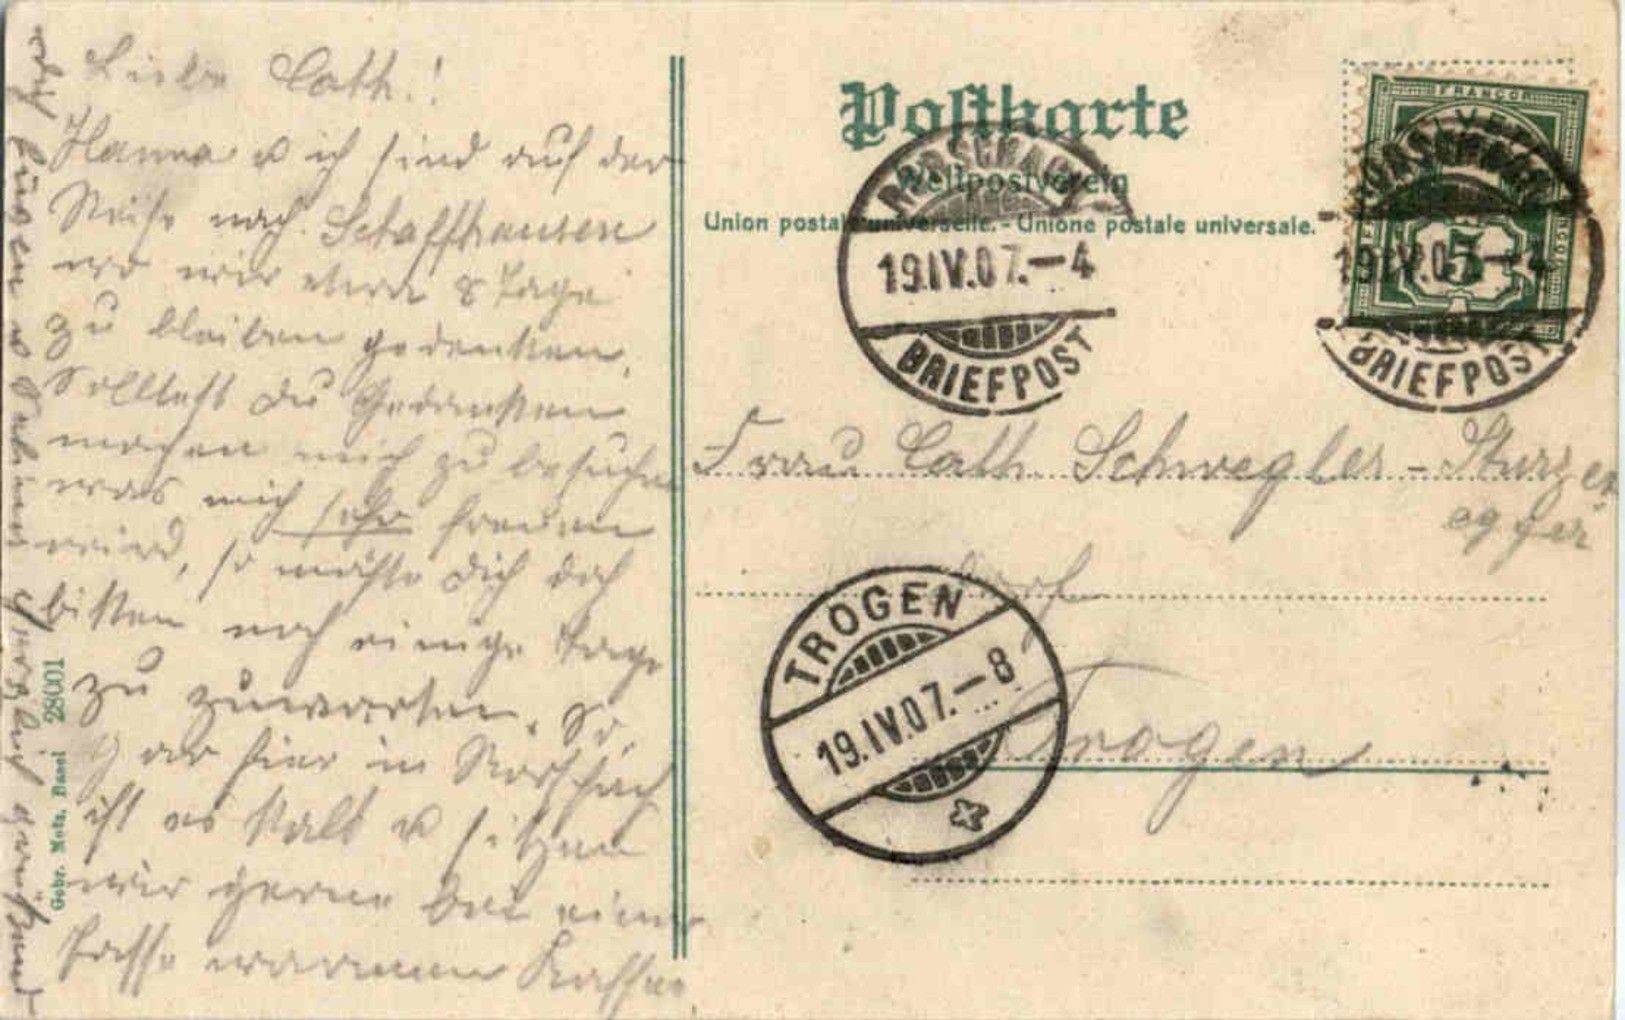 Liebe Cath!
Hanna u ich sind auf der
Reise nach Schaffhausen
wo wir etwa 8 Tage
zu bleiben gedenken.
Solltest du Gedanken
machen mich zu besuchen
was mich sehr freuen
wird, so möchte dich doch
bitten noch einige Tage
zu zuwarten. So,
hier in Rorschach
ist es kalt u sitzen
wir gerne bei einer
Tasse warmen Kaffee
u herzlich grüssend
Gebr. Metz, Basel 28001
Postkarte
Weltpostverein
Union postale universelle. - Unione postale universale.
RORSCHACH
19.IV.07.-4
BRIEFPOST
FRANCO
HELVETIA
5
RORSCHACH
19.IV.07.-4
BRIEFPOST
Frau Cath. Schwegler - Sturzen
egger
dorf
TROGEN
19.IV.07.-8
Trogen